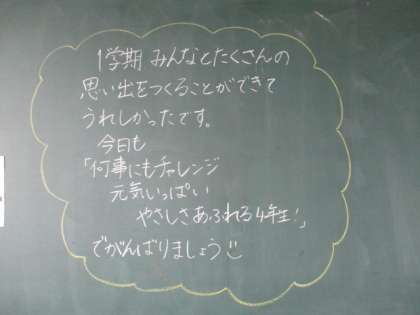 1学期 みんなとたくさんの
思い出をつくることができて
うれしかったです。
今日も
「何事にもチャレンジ
元気いっぱい
やさしさあふれる4年生!」
でがんばりましょう